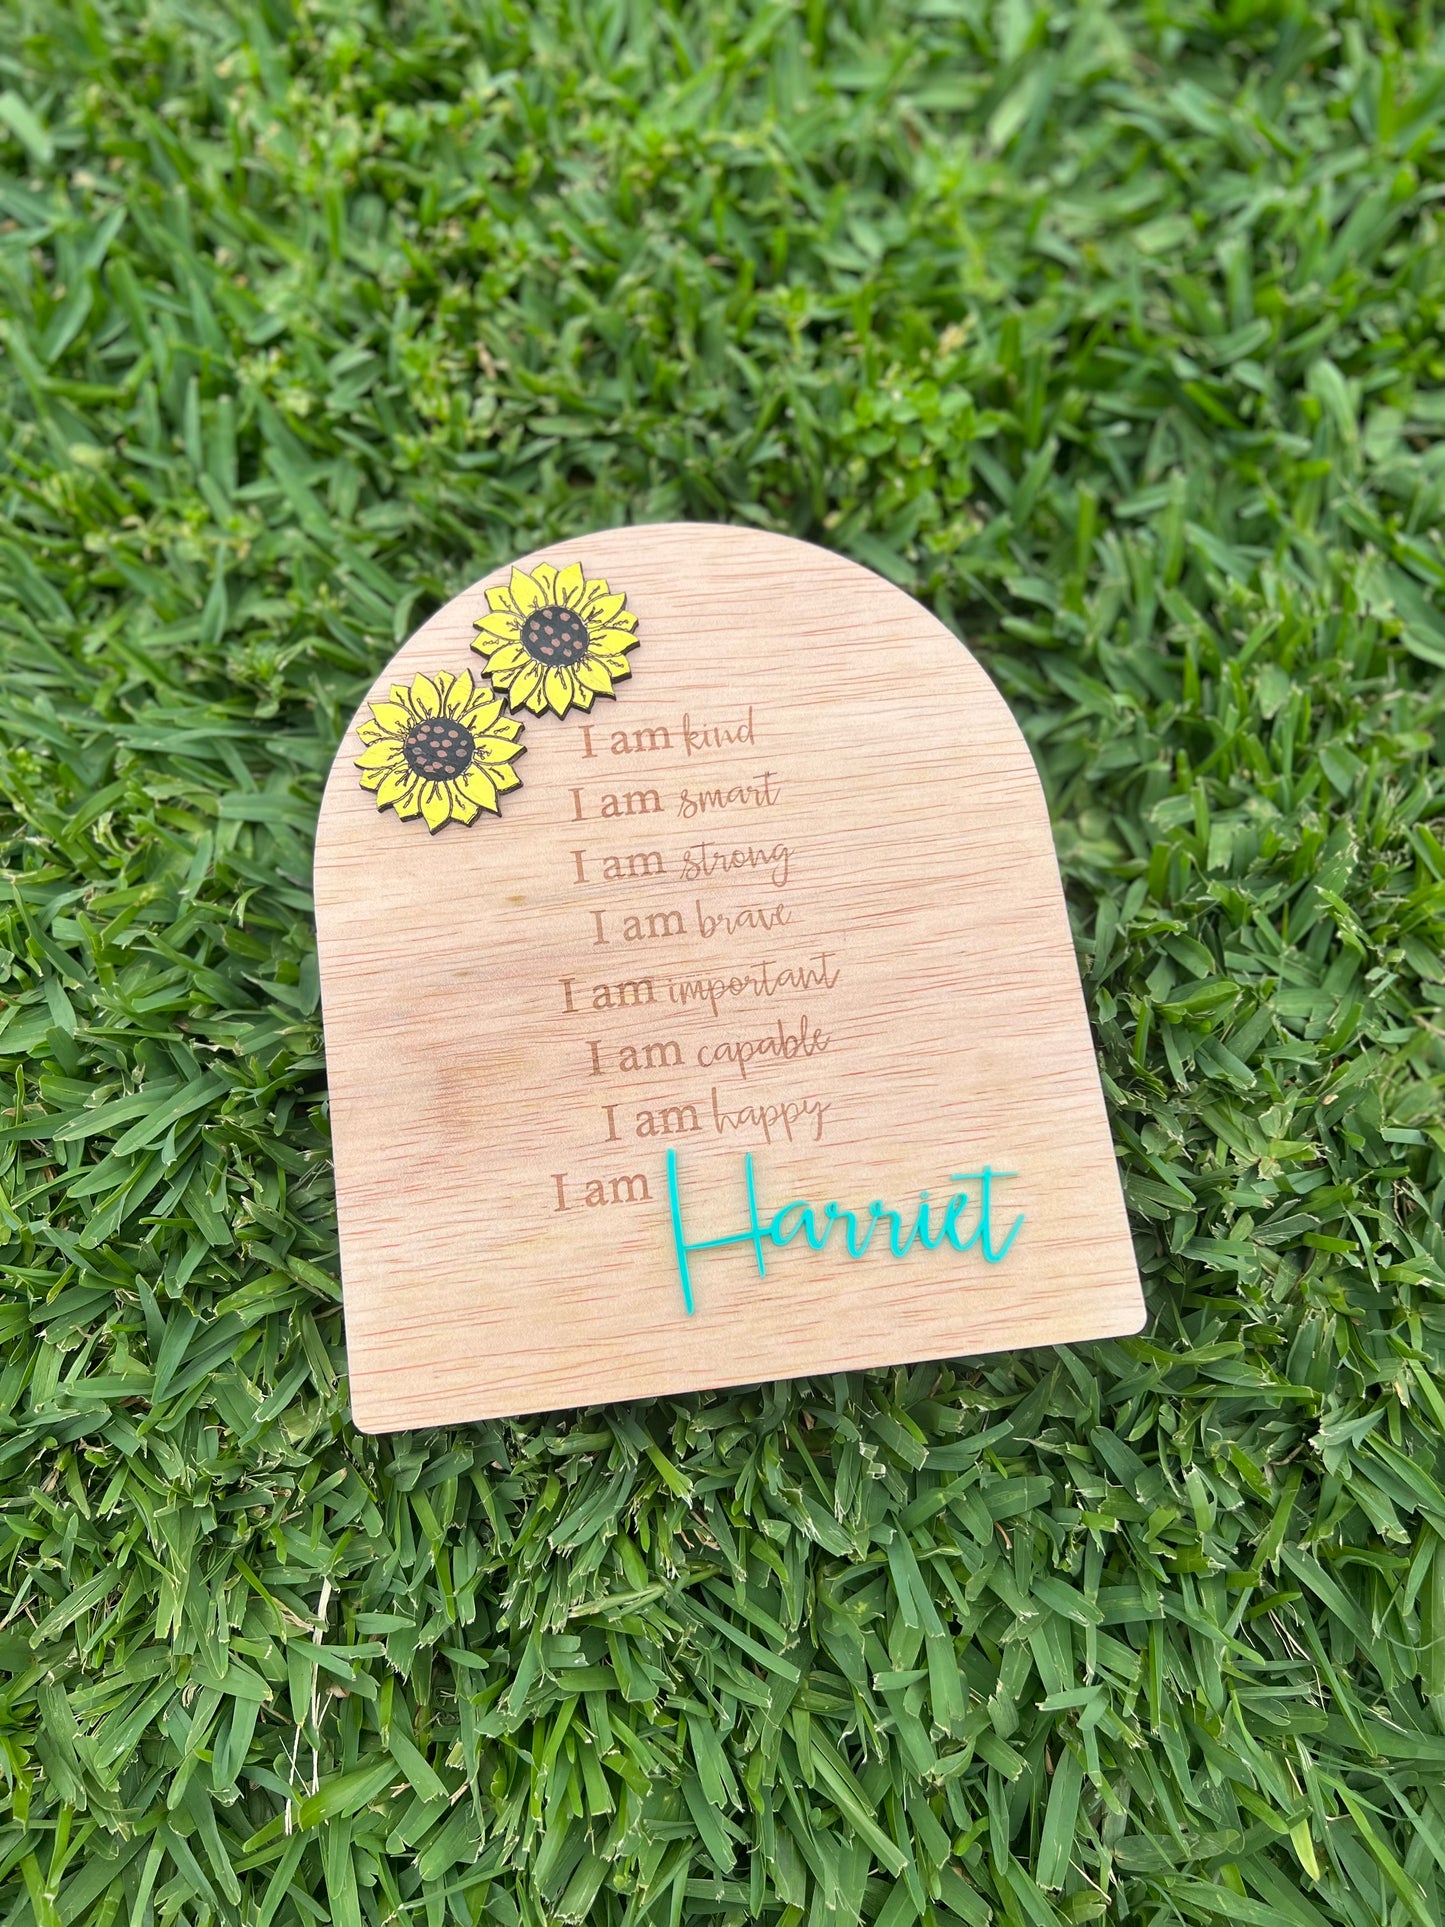 I am kind
I am smart
I am strong
I am brave
I am important
I am capable
I am happy
I am Harriet